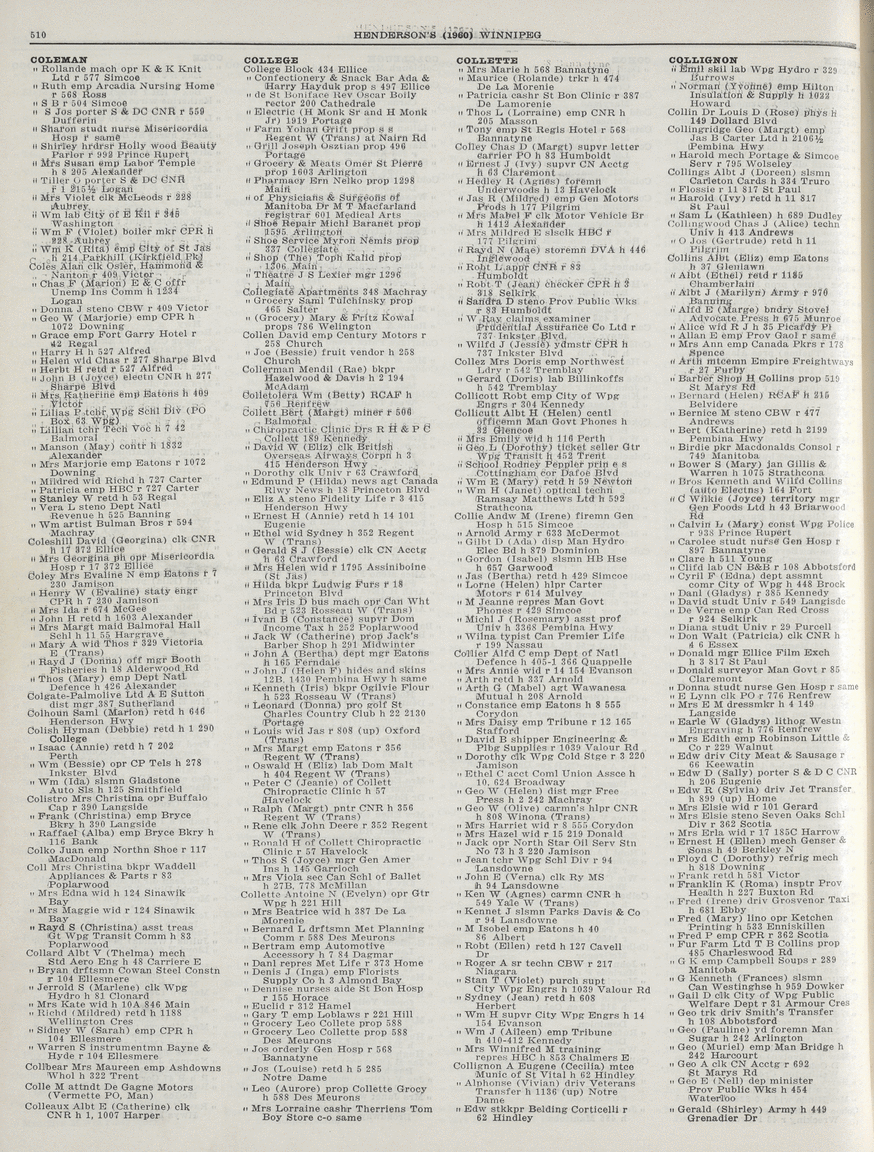 510
HENDERSON'S (1960) WINNIPEG
COLEMAN
" Rollande mach opr K & K Knit
Ltd r 577 Simcoe
" Ruth emp Arcadia Nursing Home
r 568 Ross
" S B r 504 Simcoe
" S Jos porter S & DC CNR r 559
Dufferin
" Sharon studt nurse Misericordia
Hosp r same
" Shirley hrdrsr Holly wood Beauty
Parlor r 999 Prince Rupert
" Mrs Susan emp Labor Temple
h 8 205 Alexander
" Tiller O porter S & DC CNR
r 1 215½ Logan
" Mrs Violet clk McLeods r 228
Aubrey
" Wm lab City of E Kil r 345
Washington
" Wm F (Violet) boiler mkr CPR h
228 Aubrey
" Wm K (Rita) emp City of St Jas
h 214 Parkhill (Kirkfield Pk)
Coles Alan clk Osler, Hammond &
Nanton r 409 Victor
" Chas F (Marion) E & C offr
Unemp Ins Comm h 1234
Logan
" Donna J steno CBW r 409 Victor
" Geo W (Marjorie) emp CPR h
1072 Downing
" Grace emp Fort Garry Hotel r
42 Regal
" Harry H h 527 Alfred
" Helen wid Chas r 277 Sharpe Blvd
" Herbt H retd r 527 Alfred
" John B (Joyce) electn CNR h 277
Sharpe Blvd
" Mrs Katherine emp Eatons h 409
Victor
" Lilias P tchr Wpg Schl Div (PO
Box 63 Wpg)
" Lillian tchr Tech Voc h 7 42
Balmoral
" Manson (May) contr h 1832
Alexander
" Mrs Marjorie emp Eatons r 1072
Downing
" Mildred wid Richd h 727 Carter
" Patricia emp HBC r 727 Carter
" Stanley W retd h 53 Regal
" Vera L steno Dept Natl
Revenue h 525 Banning
" Wm artist Bulman Bros r 594
Machray
Coleshill David (Georgina) clk CNR
h 17 372 Ellice
" Mrs Georgina ph opr Misericordia
Hosp r 17 372 Ellice
Coley Mrs Evaline N emp Eatons r 7
230 Jamison
" Henry W (Evaline) staty engr
CPR h 7 230 Jamison
" Mrs Ida r 674 McGee
" John H retd h 1603 Alexander
" Mrs Margt maid Balmoral Hall
Schl h 11 55 Hargrave
" Mary A wid Thos r 329 Victoria
E (Trans)
" Rayd J (Donna) off mgr Booth
Fisheries h 18 Alderwood Rd
" Thos (Mary) emp Dept Natl
Defence h 426 Alexander
Colgate-Palmolive Ltd A E Sutton
dist mgr 387 Sutherland
Colhoun Saml (Marion) retd h 646
Henderson Hwy
Colish Hyman (Debbie) retd h 1 290
College
" Isaac (Annie) retd h 7 202
Perth
" Wm (Bessie) opr CP Tels h 278
Inkster Blvd
" Wm (Ida) slsmn Gladstone
Auto Sls h 125 Smithfield
Colistro Mrs Christina opr Buffalo
Cap r 390 Langside
" Frank (Christina) emp Bryce
Bkry h 390 Langside
" Raffael (Alba) emp Bryce Bkry h
116 Bank
Colko Juan emp Northn Shoe r 117
MacDonald
Coll Mrs Christina bkpr Waddell
Appliances & Parts r 83
Poplarwood
" Mrs Edna wid h 124 Sinawik
Bay
" Mrs Maggie wid r 124 Sinawik
Bay
" Rayd S (Christina) asst treas
Gt Wpg Transit Comm h 83
Poplarwood
Collard Albt V (Thelma) mech
Std Aero Eng h 48 Carriere E
" Bryan drftsmn Cowan Steel Constn
r 104 Ellesmere
" Jerrold S (Marlene) clk Wpg
Hydro h 81 Clonard
" Mrs Kate wid h 10A 846 Main
" Richd (Mildred) retd h 1188
Wellington Cres
" Sidney W (Sarah) emp CPR h
104 Ellesmere
" Warren S instrumentmn Bayne &
Hyde r 104 Ellesmere
Collbear Mrs Maureen emp Ashdowns
Whol h 322 Trent
Colle M attndt De Gagne Motors
(Vermette PO, Man)
Colleaux Albt E (Catherine) clk
CNR h 1, 1007 Harper
COLLEGE
College Block 434 Ellice
" Confectionery & Snack Bar Ada &
Harry Hayduk prop s 497 Ellice
" de St Boniface Rev Oscar Boily
rector 200 Cathedrale
" Electric (H Monk Sr and H Monk
Jr) 1919 Portage
" Farm Yohan Grift prop s s
Regent W (Trans) at Nairn Rd
" Grill Joseph Osztian prop 496
Portage
" Grocery & Meats Omer St Pierre
prop 1603 Arlington
" Pharmacy Ern Nelko prop 1298
Main
" of Physicians & Surgeons of
Manitoba Dr M T Macfarland
registrar 601 Medical Arts
" Shoe Repair Michl Baranet prop
1595 Arlington
" Shoe Service Myron Nemis prop
337 Collegiate
" Shop (The) Toph Kalid prop
1306 Main
" Theatre J S Lexier mgr 1296
Main
Collegiate Apartments 348 Machray
" Grocery Saml Tulchinsky prop
465 Salter
" (Grocery) Mary & Fritz Kowal
props 786 Welington
Collen David emp Century Motors r
258 Church
" Joe (Bessie) fruit vendor h 258
Church
Collerman Mendil (Rae) bkpr
Hazelwood & Davis h 2 194
McAdam
Colletolera Wm (Betty) RCAF h
756 Renfrew
Collett Bert (Margt) miner r 506
Balmoral
" Chiropractic Clinic Drs R H & P C
Collett 189 Kennedy
" David W (Eliz) clk British
Overseas Airways Corpn h 3
415 Henderson Hwy
" Dorothy clk Univ r 63 Crawford
" Edmund P (Hilda) news agt Canada
Rlwy News h 18 Princeton Blvd
" Eliz A steno Fidelity Life r 3 415
Henderson Hwy
" Ernest H (Annie) retd h 14 101
Eugenie
" Ethel wid Sydney h 352 Regent
W (Trans)
" Gerald S J (Bessie) clk CN Acctg
h 63 Crawford
" Mrs Helen wid r 1795 Assiniboine
(St Jas)
" Hilda bkpr Ludwig Furs r 18
Princeton Blvd
" Mrs Iris D bus mach opr Can Wht
Bd r 523 Rosseau W (Trans)
" Ivan B (Constance) supvr Dom
Income Tax h 252 Poplarwood
" Jack W (Catherine) prop Jack's
Barber Shop h 291 Midwinter
" John A (Bertha) dept mgr Eatons
h 165 Ferndale
" John J (Helen F) hides and skins
12B, 1430 Pembina Hwy h same
" Kenneth (Iris) bkpr Ogilvie Flour
h 523 Rosseau W (Trans)
" Leonard (Donna) pro golf St
Charles Country Club h 22 2130
Portage
" Louis wid Jas r 808 (up) Oxford
(Trans)
" Mrs Margt emp Eatons r 356
Regent W (Trans)
" Oswald H (Eliz) lab Dom Malt
h 404 Regent W (Trans)
" Peter C (Jeanie) of Collett
Chiropractic Clinic h 57
Havelock
" Ralph (Margt) pntr CNR h 356
Regent W (Trans)
" Rene clk John Deere r 352 Regent
W (Trans)
" Ronald H of Collett Chiropractic
Clinic r 57 Havelock
" Thos S (Joyce) mgr Gen Amer
Ins h 145 Garrioch
" Mrs Viola sec Can Schl of Ballet
h 27B, 778 McMillan
Collette Antoine N (Evelyn) opr Gtr
Wpg h 221 Hill
" Mrs Beatrice wid h 387 De La
Morenie
" Bernard L drftsmn Met Planning
Comm r 588 Des Meurons
" Bertram emp Automotive
Accessory h 7 84 Dagmar
" Danl repres Met Life r 373 Home
" Denis J (Inga) emp Florists
Supply Co h 3 Almond Bay
" Dennise nurses aide St Bon Hosp
r 155 Horace
" Euclid r 312 Hamel
" Gary T emp Loblaws r 221 Hill
" Grocery Leo Collette prop 588
" Grocery Leo Collette prop 588
Des Meurons
" Jos orderly Gen Hosp r 568
Bannatyne
" Jos (Louise) retd h 5 285
Notre Dame
" Leo (Aurore) prop Collette Grocy
h 588 Des Meurons
" Mrs Lorraine cashr Therriens Tom
Boy Store c-o same
COLLETTE
" Mrs Marie h 568 Bannatyne
" Maurice (Rolande) trkr h 474
De La Morenie
" Patricia cashr St Bon Clinic r 387
De Lamorenie
" Thos L (Lorraine) emp CNR h
205 Masson
" Tony emp St Regis Hotel r 568
Bannatyne
Colley Chas D (Margt) supvr letter
carrier PO h 83 Humboldt
" Ernest J (Ivy) supvr CN Acctg
h 63 Claremont
" Hedley R (Agnes) foremn
Underwoods h 13 Havelock
" Jas R (Mildred) emp Gen Motors
Prods h 177 Pilgrim
" Mrs Mabel F clk Motor Vehicle Br
h 1412 Alexander
" Mrs Mildred E slsclk HBC r
177 Pilgrim
" Rayd N (Mae) storemn DVA h 446
Inglewood
" Robt L appr CNR r 83
Humboldt
" Robt T (Jean) checker CPR h 3
318 Selkirk
" Sandra D steno Prov Public Wks
r 83 Humboldt
" W Ray claims examiner
Prudential Assurance Co Ltd r
737 Inkster Blvd
" Wilfd J (Jessie) ydmstr CPR h
737 Inkster Blvd
Collez Mrs Doris emp Northwest
Ldry r 542 Tremblay
" Gerard (Doris) lab Billinkoffs
h 542 Tremblay
Collicott Robt emp City of Wpg
Engrs r 304 Kennedy
Collicutt Albt H (Helen) centl
officemn Man Govt Phones h
32 Glencoe
" Mrs Emily wid h 116 Perth
" Geo L (Dorothy) ticket seller Gtr
Wpg Transit h 452 Trent
" School Rodney Peppler prin e s
Cottingham cor Dafoe Blvd
" Wm E (Mary) retd h 59 Newton
" Wm H (Janet) optical techn
Ramsay Matthews Ltd h 592
Strathcona
Collie Andw M (Irene) firemn Gen
Hosp h 515 Simcoe
" Arnold Army r 633 McDermot
" Gilbt D (Ada) disp Man Hydro
Elec Bd h 879 Dominion
" Gordon (Isabel) slsmn HB Hse
h 657 Garwood
" Jas (Bertha) retd h 429 Simcoe
" Lorne (Helen) hlpr Carter
Motors r 614 Mulvey
" M Jeanne repres Man Govt
Phones r 429 Simcoe
" Michl J (Rosemary) asst prof
Univ h 3368 Pembina Hwy
" Wilna typist Can Premier Life
r 199 Nassau
Collier Alfd C emp Dept of Natl
Defence h 405-1 366 Quappelle
" Mrs Annie wid r 14 154 Evanson
" Arth retd h 337 Arnold
" Arth G (Mabel) agt Wawanesa
Mutual h 208 Arnold
" Constance emp Eatons h 8 555
Corydon
" Mrs Daisy emp Tribune r 12 165
Stafford
" David B shipper Engineering &
Plbg Supplies r 1039 Valour Rd
" Dorothy clk Wpg Cold Stge r 3 220
Jamison
" Ethel C acct Coml Union Assce h
10, 624 Broadway
" Geo W (Helen) dist mgr Free
Press h 2 242 Machray
" Geo W (Olive) carmn's hlpr CNR
h 808 Winona (Trans)
" Mrs Harriet wid r 8 555 Corydon
" Mrs Hazel wid r 15 219 Donald
" Jack opr North Star Oil Serv Stn
No 73 h 3 220 Jamison
" Jean tchr Wpg Schl Div r 94
Lansdowne
" John E (Verna) clk Ry MS
h 94 Lansdowne
" Ken W (Agnes) carmn CNR h
549 Yale W (Trans)
" Kennet J slsmn Parks Davis & Co
r 94 Lansdowne
" M Isobel emp Eatons h 40
86 Albert
" Robt (Ellen) retd h 127 Cavell
Dr
" Roger A sr techn CBW r 217
Niagara
" Stan T (Violet) purch supt
City Wpg Engrs h 1039 Valour Rd
" Sydney (Jean) retd h 608
Herbert
" Wm H supvr City Wpg Engrs h 14
154 Evanson
" Wm J (Aileen) emp Tribune
h 410-412 Kennedy
" Mrs Winnifred M training
repres HBC h 853 Chalmers E
Collignon A Eugene (Cecilia) mtce
Munic of St Vital h 62 Hindley
" Alphonse (Vivian) driv Veterans
Transfer h 1136 (up) Notre
Dame
" Edw stkkpr Belding Corticelli r
62 Hindley
COLLIGNON
" Emil skil lab Wpg Hydro r 329
Burrows
" Norman (Yvonne) emp Hilton
Insulation & Supply h 1022
Howard
Collin Dr Louis D (Rose) phys h
149 Dollard Blvd
Collingridge Geo (Margt) emp
Jas B Carter Ltd h 2106½
Pembina Hwy
" Harold mech Portage & Simcoe
Serv r 795 Wolseley
Collings Albt J (Doreen) slsmn
Carleton Cards h 334 Truro
" Flossie r 11 817 St Paul
" Harold (Ivy) retd h 11 817
St Paul
" Sam L (Kathleen) h 689 Dudley
Collingwood Chas J (Alice) techn
Univ h 413 Andrews
" O Jos (Gertrude) retd h 11
Pilgrim
Collins Albt (Eliz) emp Eatons
h 37 Glenlawn
" Albt (Ethel) retd r 1185
Chamberlain
" Albt J (Marilyn) Army r 976
Banning
" Alfd E (Marge) bndry Stovel
Advocate Press h 675 Munroe
" Alice wid R J h 35 Picardy Pl
" Allan E emp Prov Gaol r same
" Mrs Ann emp Canada Pkrs r 178
Spence
" Arth mtcemn Empire Freightways
r 27 Furby
" Barber Shop H Collins prop 519
St Marys Rd
" Bernard (Helen) RCAF h 215
Belvidere
" Bernice M steno CBW r 477
Andrews
" Bert (Katherine) retd h 2199
Pembina Hwy
" Birdie pkr Macdonalds Consol r
749 Manitoba
" Bower S (Mary) jan Gillis &
Warren h 1075 Strathcona
" Bros Kenneth and Wilfd Collins
(auto Electns) 164 Fort
" C Wilkie (Joyce) territory mgr
Gen Foods Ltd h 43 Briarwood
Rd
" Calvin L (Mary) const Wpg Police
r 938 Prince Rupert
" Carolee studt nurse Gen Hosp r
897 Bannatyne
" Clare h 511 Young
" Clifd lab CN B&B r 108 Abbotsford
" Cyril F (Edna) dept assmnt
comr City of Wpg h 448 Brock
" Danl (Gladys) r 385 Kennedy
" David studt Univ r 549 Langside
" De Verne emp Can Red Cross
r 924 Selkirk
" Diana studt Univ r 29 Purcell
" Don Walt (Patricia) clk CNR h
4 6 Essex
" Donald mgr Ellice Film Exch
h 3 817 St Paul
" Donald surveyor Man Govt r 85
Claremont
" Donna studt nurse Gen Hosp r same
" E Lynn clk PO r 776 Renfrew
" Mrs E M dressmkr h 4 149
Langside
" Earle W (Gladys) lithog Westn
Engraving h 776 Renfrew
" Mrs Edith emp Robinson Little &
Co r 229 Walnut
" Edw driv City Meat & Sausage r
66 Keewatin
" Edw D (Sally) porter S & D C CNR
h 206 Eugenie
" Edw R (Sylvia) driv Jet Transfer
h 899 (up) Home
" Mrs Elsie wid r 101 Gerard
" Mrs Elsie steno Seven Oaks Schl
Div r 362 Scotia
" Mrs Erla wid r 17 185C Harrow
" Ernest H (Ellen) mech Genser &
Sons h 49 Berkley N
" Floyd C (Dorothy) refrig mech
h 818 Downing
" Frank retd h 581 Victor
" Franklin K (Roma) insptr Prov
Health h 227 Buxton Rd
" Fred (Irene) driv Grosvenor Taxi
h 681 Ebby
" Fred (Mary) lino opr Ketchen
Printing h 533 Enniskillen
" Fred P emp CPR r 362 Scotia
" Fur Farm Ltd T B Collins prop
485 Charleswood Rd
" G K emp Campbell Soups r 289
Manitoba
" G Kenneth (Frances) slsmn
Can Westinghse h 959 Dowker
" Gail D clk City of Wpg Public
Welfare Dept r 31 Armour Cres
" Geo trk driv Smith's Transfer
h 108 Abbotsford
" Geo (Pauline) yd foremn Man
Sugar h 242 Arlington
" Geo (Muriel) emp Man Bridge h
242 Harcourt
" Geo A clk CN Acctg r 692
St Marys Rd
" Geo E (Nell) dep minister
Prov Public Wks h 454
Waterloo
" Gerald (Shirley) Army h 449
Grenadier Dr